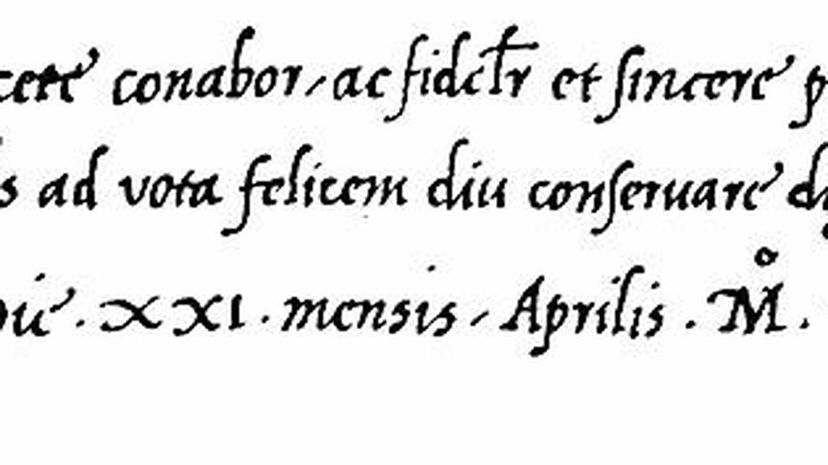 conabor, ac fidelr et sincere
ad vota felicem diu conseruare
. XXI . mensis , Aprilis . Mº .